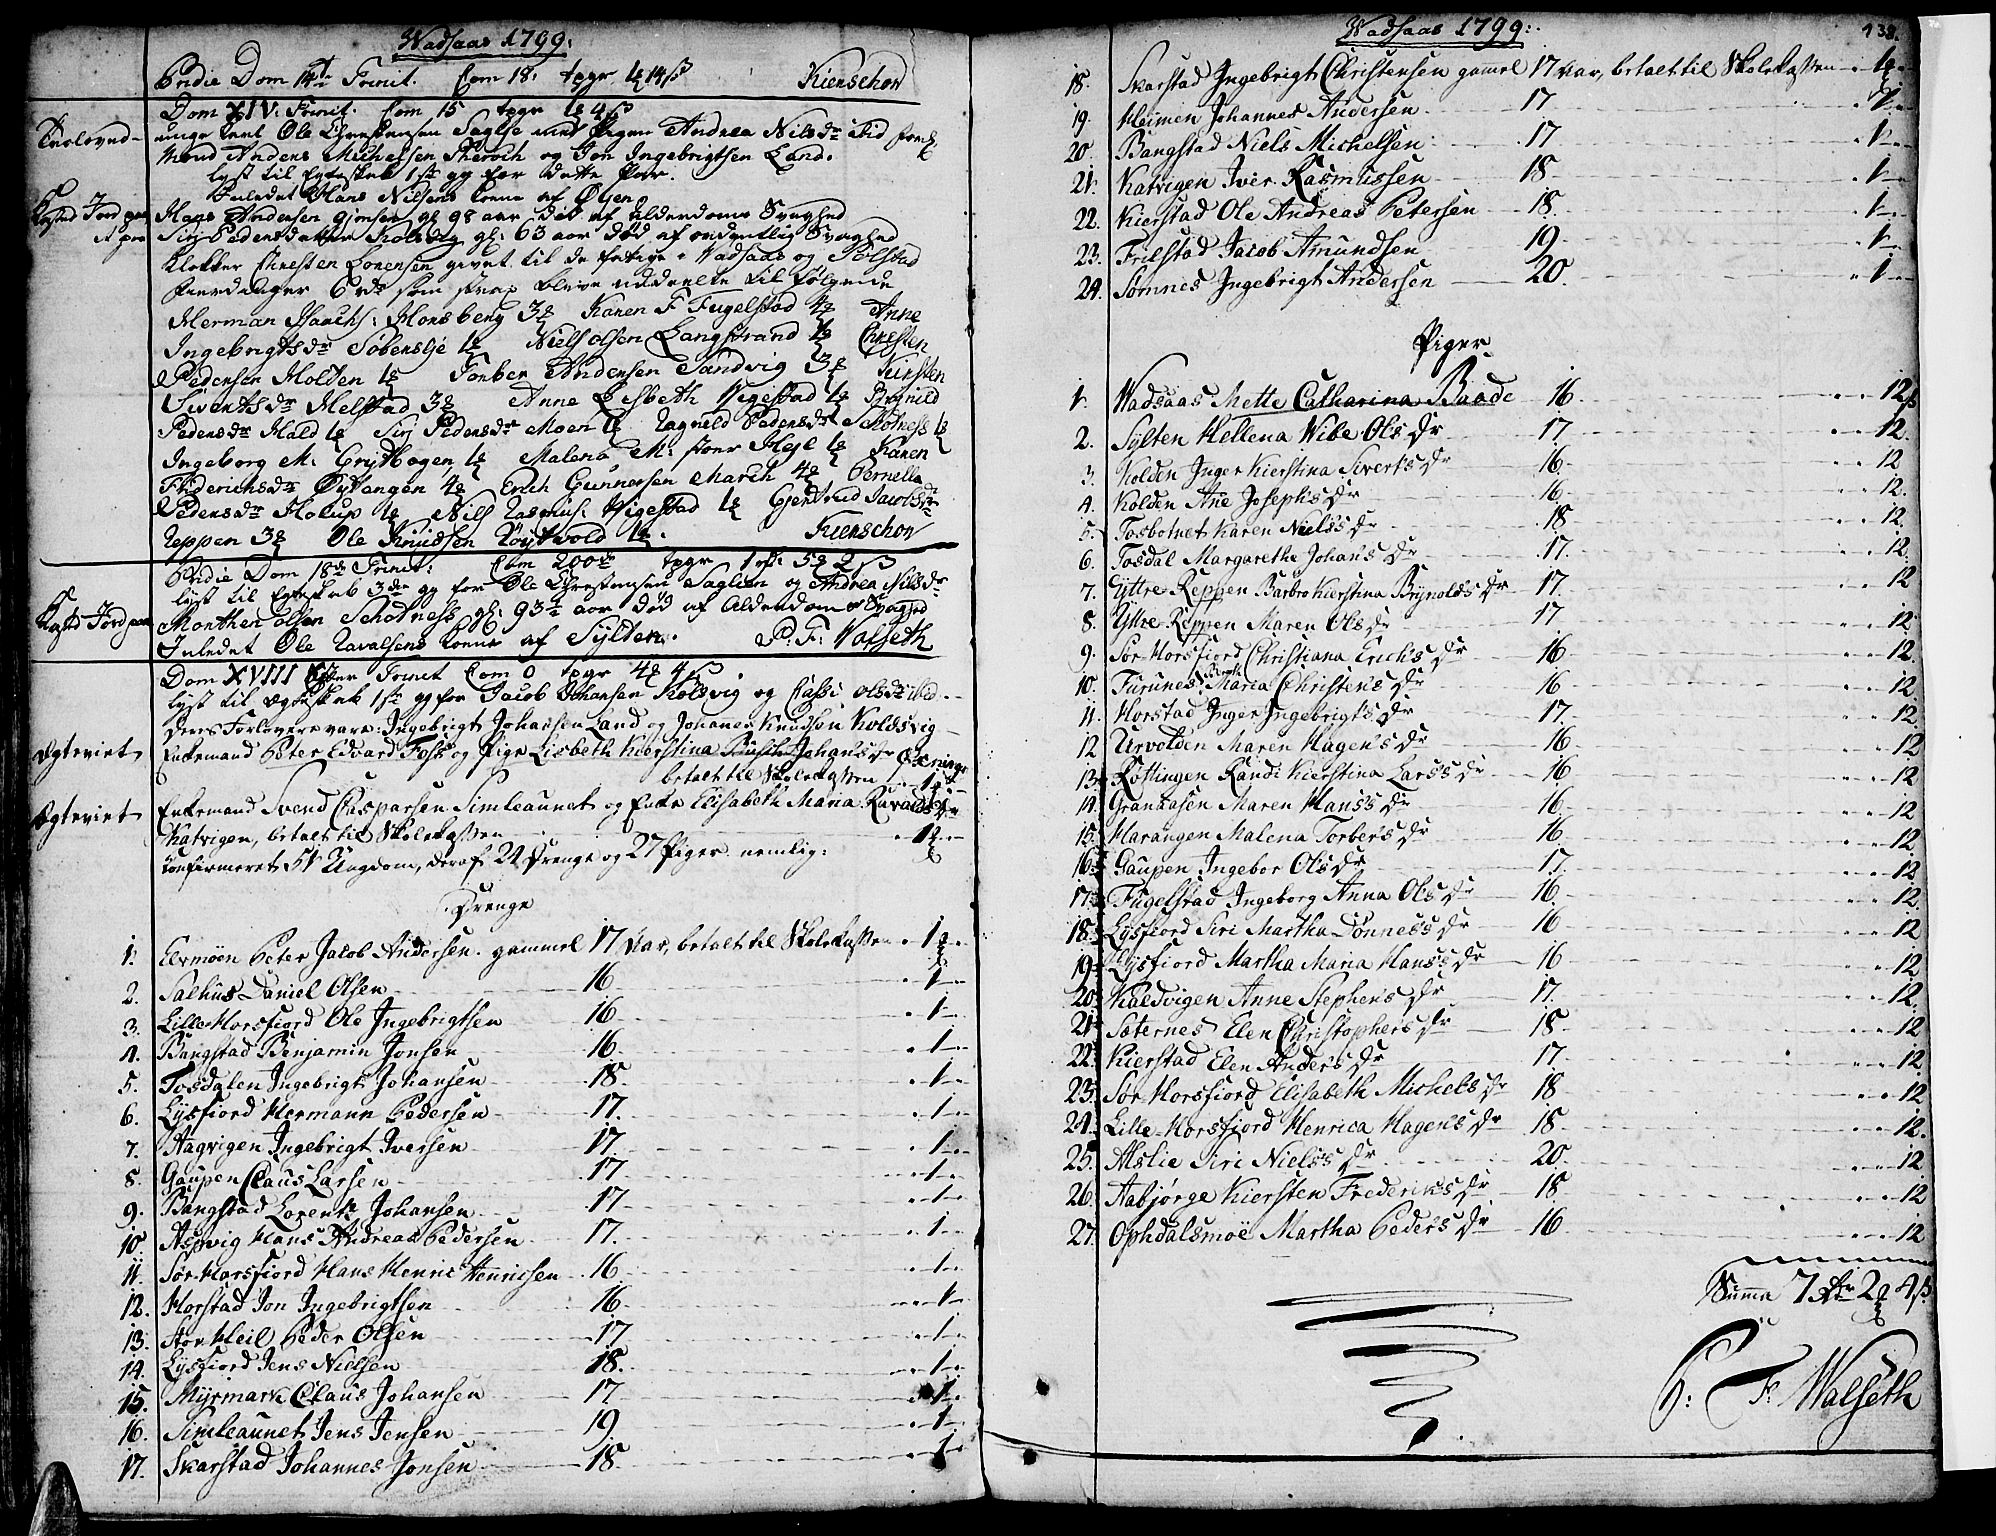 Wadsaas 1799.
Pridie Dom 14de Trinit. Com 18. tpgr 1 14 ß Kierschow
Dom XIV. Trinit. Com 15 tpgr 1 4 ß
Troloved unge Karl Ole Christensen Saglie med Pigen Andrea Nilsdr ibid
Anders Michelsen og Jon Ingebrigtsen Land.
lyst til Egteskab 1ste gg for dette Par.
Inledet Hans Nilsens Kone af Øyen
Kasted Jord paa Hans Andersen gl 98 aar død af Alderdoms Svaghed
Siri Pedersdatter Kolsvig gl: 63 aar død af ordentlig Svaghed
Klokker Christen Lorensen givet til de fattige i Wadsaas og
6 rdr som strax bleve uddeelte til følgende
Herman Isachs: Horsberg 3 Karen F Fugelstad 4 Anne
Ingebrigtsdr 1 Niels Olsen Langstrand 1 Christen
Pedersen Holden 1 Torber Andersen Sandvig 3 Kirsten
Sivertsdr Melstad 3 Anne Lisbeth Higestad 1 Brynild
Pedersdr Hald 1 Siri Pedersdr Moen 1 Ragnild Pedersdr Schotness 1
Ingeborg M: 1 Malena M: 1 Karen
Friderichsdr Øyvangen 4 Erich Gunnersen March 4 Pernella
Pedersdr Holup 1 Nils Rasmus: Higestad 1 Gjertrud Jacobsdr
Reppen 3 Ole Knudsen Røytvold 1. Kierschow
Pridie Dom 18de Trinit: Com 200de tpgr 1 5 2 ß
lyst til Egteskab 3die gg for Ole Christensen Saglien og Andrea Nilsdr
Kasted Jord paa Morthen Olsen Schotness gl: 93½ aar død af Alderdoms Svaghed
Inledet Ole Ravalsens Kone af Sylten. P: F: Walseth
Dom XVIII after Trinit Com 0 tpgr 4 4 ß.
lyst til Egteskab 1ste gg for Jacob Johansen Kolsvig og Olsdr ibid.
Deres Forlovere vare: Ingebrigt Johansen Land og Johanes Knudsen Koldsvig
Ægteviet Enkemand Peter Edvard Fosk og Pige Lisbeth Kierstina Johansdr
betalt til Skolekassen 1
Ægteviet Enkemand Svend Casparsen Simleaunet og Enke Elisabeth Maria Ravalsdr
Hatvigen, betalt til Skolekassen 1
Confirmeret 51 Ungdom, deraf 24 Drenge og 27 Piger nemlig:
Drenge
1. Elvmöen Peter Jacob Andersen gammel 17 Aar, betalt til Skolekassen 1
2. Salhus Daniel Olsen 16 1
3. Lille Horsfiord Ole Ingebrigtsen 16 1
4. Bangstad Benjamin Jonsen 16 1
5. Tosdalen Ingebrigt Johansen 18 1
6. Lysfiord Hermann Pedersen 17 1
7. Aagvigen Ingebrigt Iversen 17 1
8. Gaupen Claus Larsen 17 1
9. Bangstad Lorentz Johansen 17 1
10. Aspvig Hans Andreas Pedersen 17. 1
11. Sør-Horsfiord Hans Henric Henricsen 16 1
12. Horstad Jon Ingebrigtsen 16 1
13. Stor Heil Peder Olsen 17 1
14. Lysfiord Jens Nielsen 18. 1
15. Myrmark Claus Johansen 17 1
16. Simleaunet Jens Jensen 19 1
17. Skarstad Johannes Jonsen 18. 1
Wadsaas 1799:
138.
18. Skarstad Ingebrigt Christensen gamel 17 Aar, betalt til Skolekassen 1
19. Heimen Johannes Andersen 17 1
20. Bangstad Niels Michelsen 17 1
21. Hatvigen Iver Rasmussen 18 1
22. Kierstad Ole Andreas Petersen 18. 1
23. Frilstad Jacob Amundsen 19 1
24. Somnes Ingebrigt Andersen 20. 1
Piger
1. Wadsaas Mette Catharina Baade 16 12 ß
2. Sylten Hellena Wibe Ols Dr 17 12.
3. Holden Inger Kierstina Siverts Dr 16 12
4. Holden Ane Josephs Dr 16 12.
5. Tosbotnet Karen Niels's Dr 18 12.
6. Tosdal Margaretha Johan's Dr 17. 12.
7. Yttre Reppen Barbro Kierstina Brynolds Dr 17. 12
8. Yttre Reppen Maren Ols Dr 17 12.
9. Sør-Horsfiord Christiana Erich's Dr 16 12.
10. Furunes Berith Maria Christen's Dr 16 12
11. Horstad Inger Ingebrigt's Dr 17. 12.
12. Urvolden Maren Hagen's Dr 16 12
13. Røttingen Randi Kierstina Lars's Dr 16 12
14. Granaasen Maren Hans's Dr 16 12
15. Harangen Malena Torber's Dr 16 12
16. Gaupen Ingebor Ols Dr 17. 12
17. Fugelstad Ingeborg Anna Ols Dr 16 12.
18. Lysfiord Siri Martha Tønnes's Dr 16 12
19. Lysfiord Martha Maria Hans's Dr 16 12
20. Koldvigen Anne Stephen's Dr 17. 12.
21. Sæternes Elen Christopher's Dr 18. 12
22. Kierstad Elen Anders Dr 17. 12
23. Sør Horsfiord Elisabeth Michel's Dr 18 12
24. Lille-Horsfiord Henrica Hagen's Dr 18 12.
25. Aslie Siri Niels's Dr 20. 12
26. Aabjørge Kiersten Frederik's Dr 18. 12
27. Ophdalsmoe Martha Peder's Dr 16 12
Summa 7 Rdr 2 4 ß.
P: F: Walseth